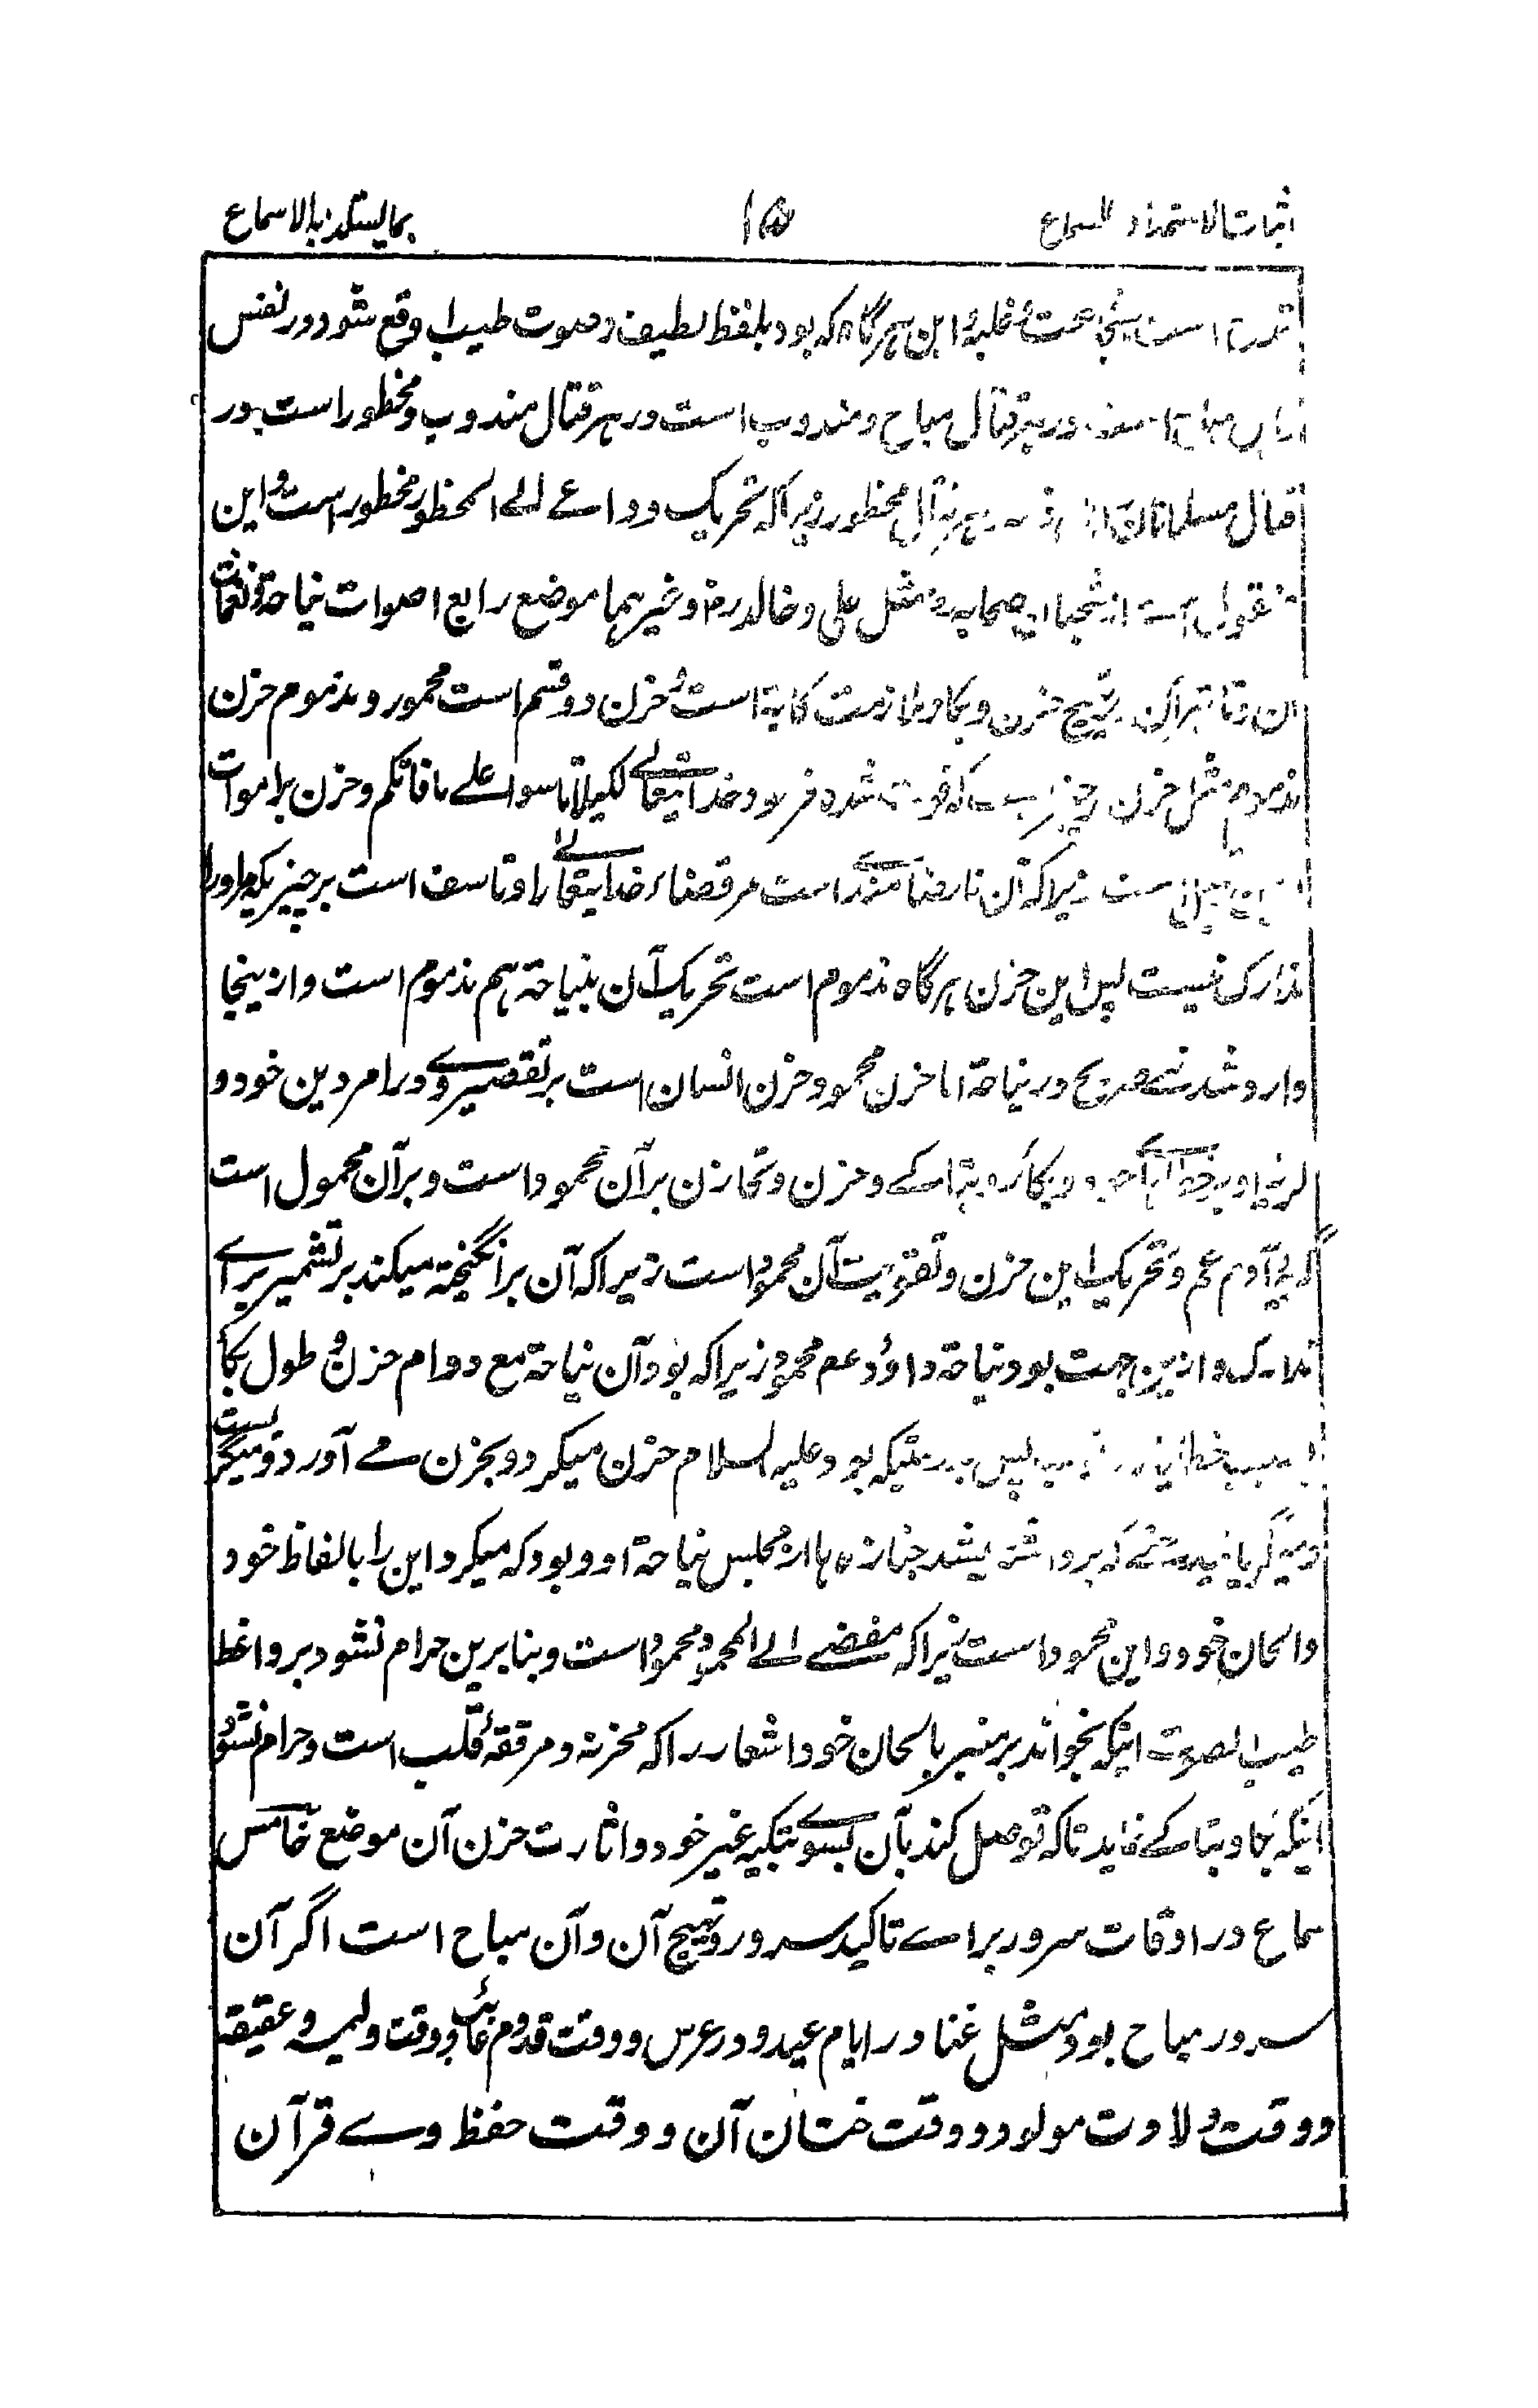 اثبات الاستمداد للسماع ۱۵ بما یستلذ بالاسماع
شجاعت و غلبهٔ این هرگاه که بود بلفظ لطیف و صوت طیب اوقع شود در نفس
مباح در هر قتال مباح و مندوب است در هر قتال مندوب و محظور است در
قتال مسلمانان قتال محظور زیرا که تحریک دواعے الے المحظور محظور است و این
منقول است از شجعان صحابه رض مثل علی و خالد رض و غیرهما موضع رابع اصوات نیاحة و نغمات
تهییج حزن و بکا و ملازمت کآبة است و حزن دو قسم است محمود و مذموم حزن
مذموم مثل حزن بر چیزے که فوت شده فرمود خدایتعالے لکیلا تاسوا علے ما فاتکم و حزن بر اموات
است زیراکه آن نارضامندے است مر قضاء خدایتعالے را و تاسف است بر چیزیکه مر او را
تدارک نیست پس این حزن هرگاه مذموم است تحریک آن بنیاحة هم مذموم است و ازینجا
وارد شد نهے صریح در نیاحة اما حزن محمود حزن انسان است بر تقصیر وے در امر دین خود و
گریه او بر خطاء خود و بکا و تباکے و حزن و تحازن بر آن محمود است و بر آن محمول است
گریهٔ آدم عم و تحریک این حزن و تقویت آن محمود است زیراکه آن برانگیخته میکند بر تشمیر براے
تدارک و ازین جهت بود نیاحة داؤد عم محمود زیراکه بود آن نیاحة مع دوام حزن و طول بکا
بسبب خطا پس بدرستیکه بود علیه السلام حزن میکرد و بحزن مے آورد و میگریست
و میگریانید حتے که برداشته میشد جنازه ها از مجلس نیاحة او و بود که میکرد این را بالفاظ خود
و الحان خود و این محمود است زیراکه مفضے الے المحمود محمود است و بنابرین حرام نشود بر واعظ
طیب الصوت اینکه بخواند بر منبر بالحان خود اشعار را که محزنه و مرققهٔ قلب است و حرام نشود
اینکه بکا و تباکے نماید تاکه توصل کند بآن بسوے تبکیه غیر خود و اثارت حزن آن موضع خامس
سماع در اوقات سرور براے تاکید سرور و تهییج آن و آن مباح است اگر آن
سرور مباح بود مثل غنا در ایام عید و در عرس و وقت قدوم غائب و وقت ولیمه و عقیقه
و وقت ولادت مولود و وقت ختان آن و وقت حفظ وے قرآن